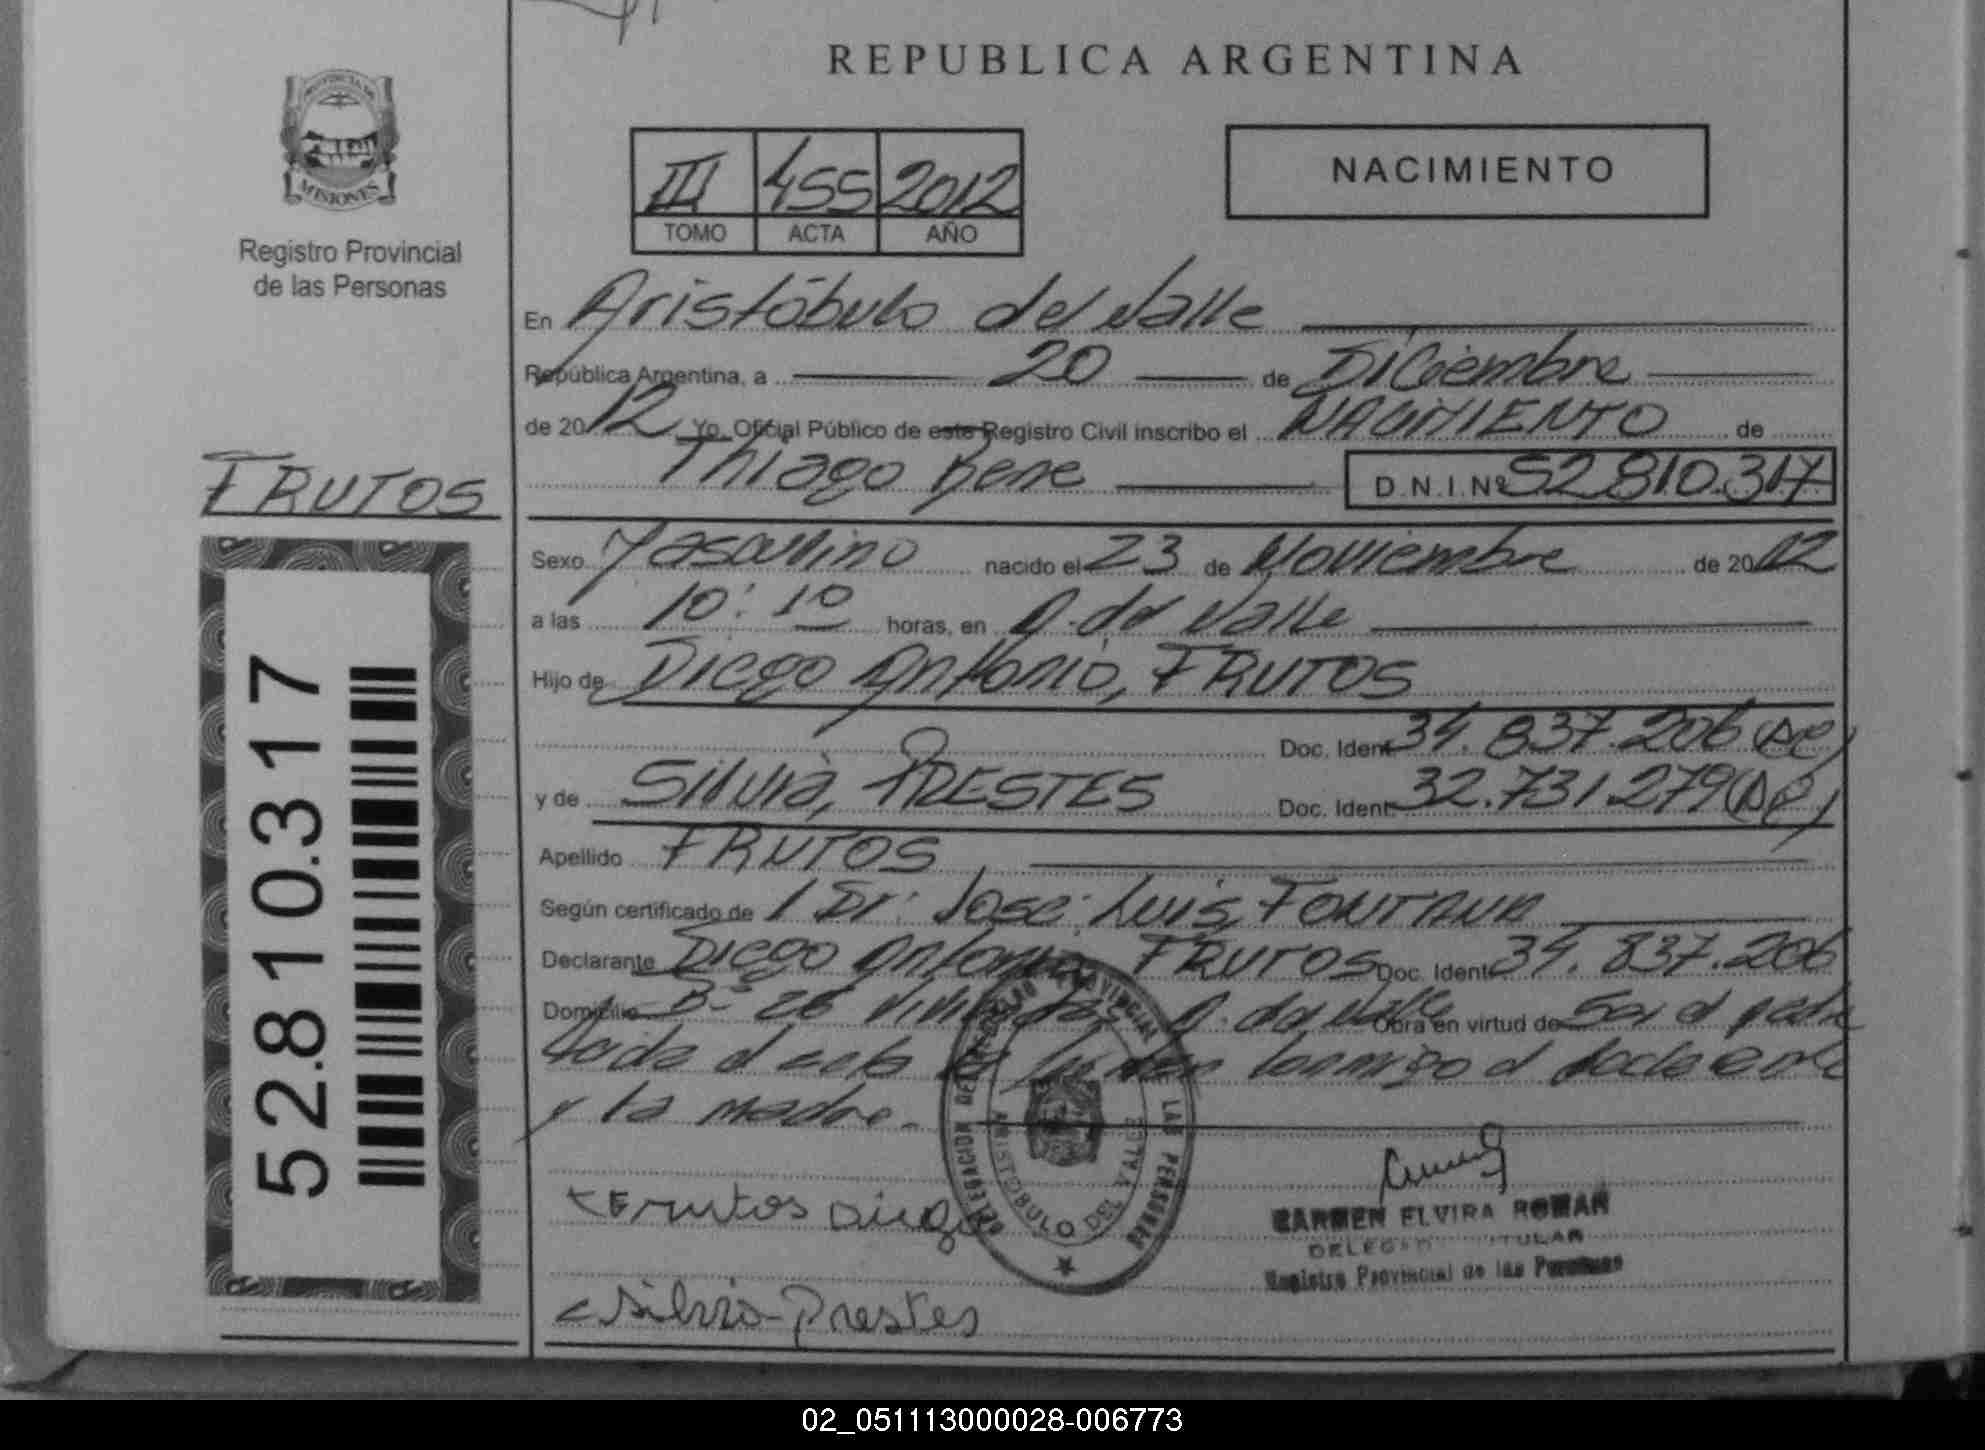 REPUBLICA ARGENTINA
PROVINCIA DE
MISIONES
Registro Provincial
de las Personas
III 455 2012
TOMO ACTA AÑO
NACIMIENTO
En Aristóbulo del Valle
República Argentina, a 20 de Diciembre
de 2012 Yo, Oficial Público de este Registro Civil inscribo el NACIMIENTO de
Thiago Rene D.N.I.Nº 52.810.317
FRUTOS
52.810.317
Sexo Masculino nacido el 23 de Noviembre de 2012
a las 10:10 horas, en A. del Valle
Hijo de Diego Antonio, FRUTOS
Doc. Ident. 34.837.206
y de Silvia, PRESTES Doc. Ident. 32.731.279
Apellido FRUTOS
Según certificado de Dr. José Luis, FONTANA
Declarante Diego Antonio FRUTOS Doc. Ident. 34.837.206
Domicilio Bº 26 Viviendas A. del Valle Obra en virtud de Ser el padre
Leida el acta la firman conmigo el declarante
y la madre.
DELEGACION DEL REGISTRO PROVINCIAL DE LAS PERSONAS
ARISTOBULO DEL VALLE
Frutos Diego
CARMEN ELVIRA ROMAN
DELEGADA TITULAR
Registro Provincial de las Personas
Silvia Prestes
02_051113000028-006773